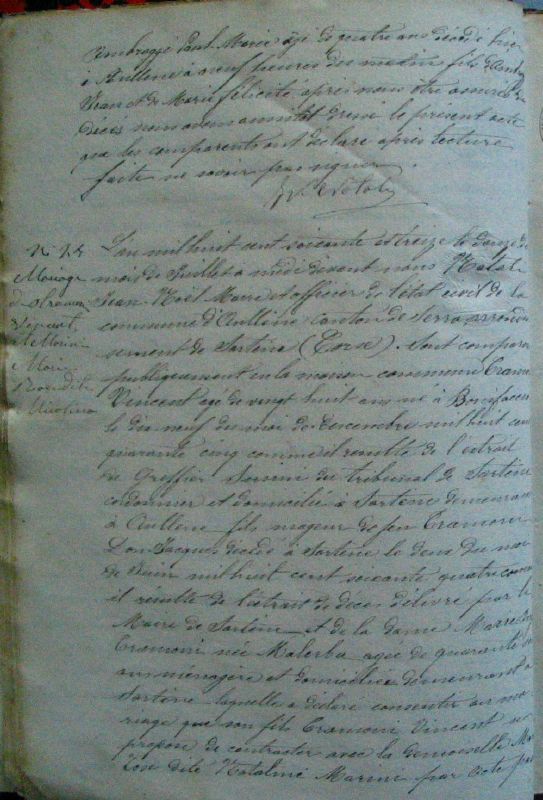 Paul Marie âgé de quatre ans décédé hier
à Aullène à neuf heures du matin fils de
Jean et de Marie Félicité après nous être assuré du
décès nous avons aussitôt dressé le présent acte
que les comparants ont déclaré après lecture
faite ne savoir pas signer
N.
Mariage
Vincent
et
L'an mil huit cent soixante et treize le douze du
mois de Juillet à midi devant nous Natali
Jean Noël Maire et officier de l'état civil de la
commune d'Aullène canton de Serra arrondis
sement de Sartène (Corse). Sont comparus
publiquement en la maison commune Cramoni
Vincent âgé de vingt huit ans né à Bonifacio
le dix neuf du mois de Décembre mil huit cent
quarante cinq comme il résulte de l'extrait
du Greffier du tribunal de Sartène
cordonnier et domicilié à Sartène demeurant
à Aullène fils majeur de feu Cramoni
Don Jacques décédé à Sartène le deux du mois
de Juin mil huit cent soixante quatre comme
il résulte de l'extrait de décès délivré par le
Maire de Sartène et de la dame
Cramoni née Malerba agée de quarante
ans ménagère et domiciliée demeurant à
Sartène laquelle a déclaré consentir au ma
riage que son fils Cramoni Vincent se
propose de contracter avec la demoiselle
dite Nataline Marini par acte